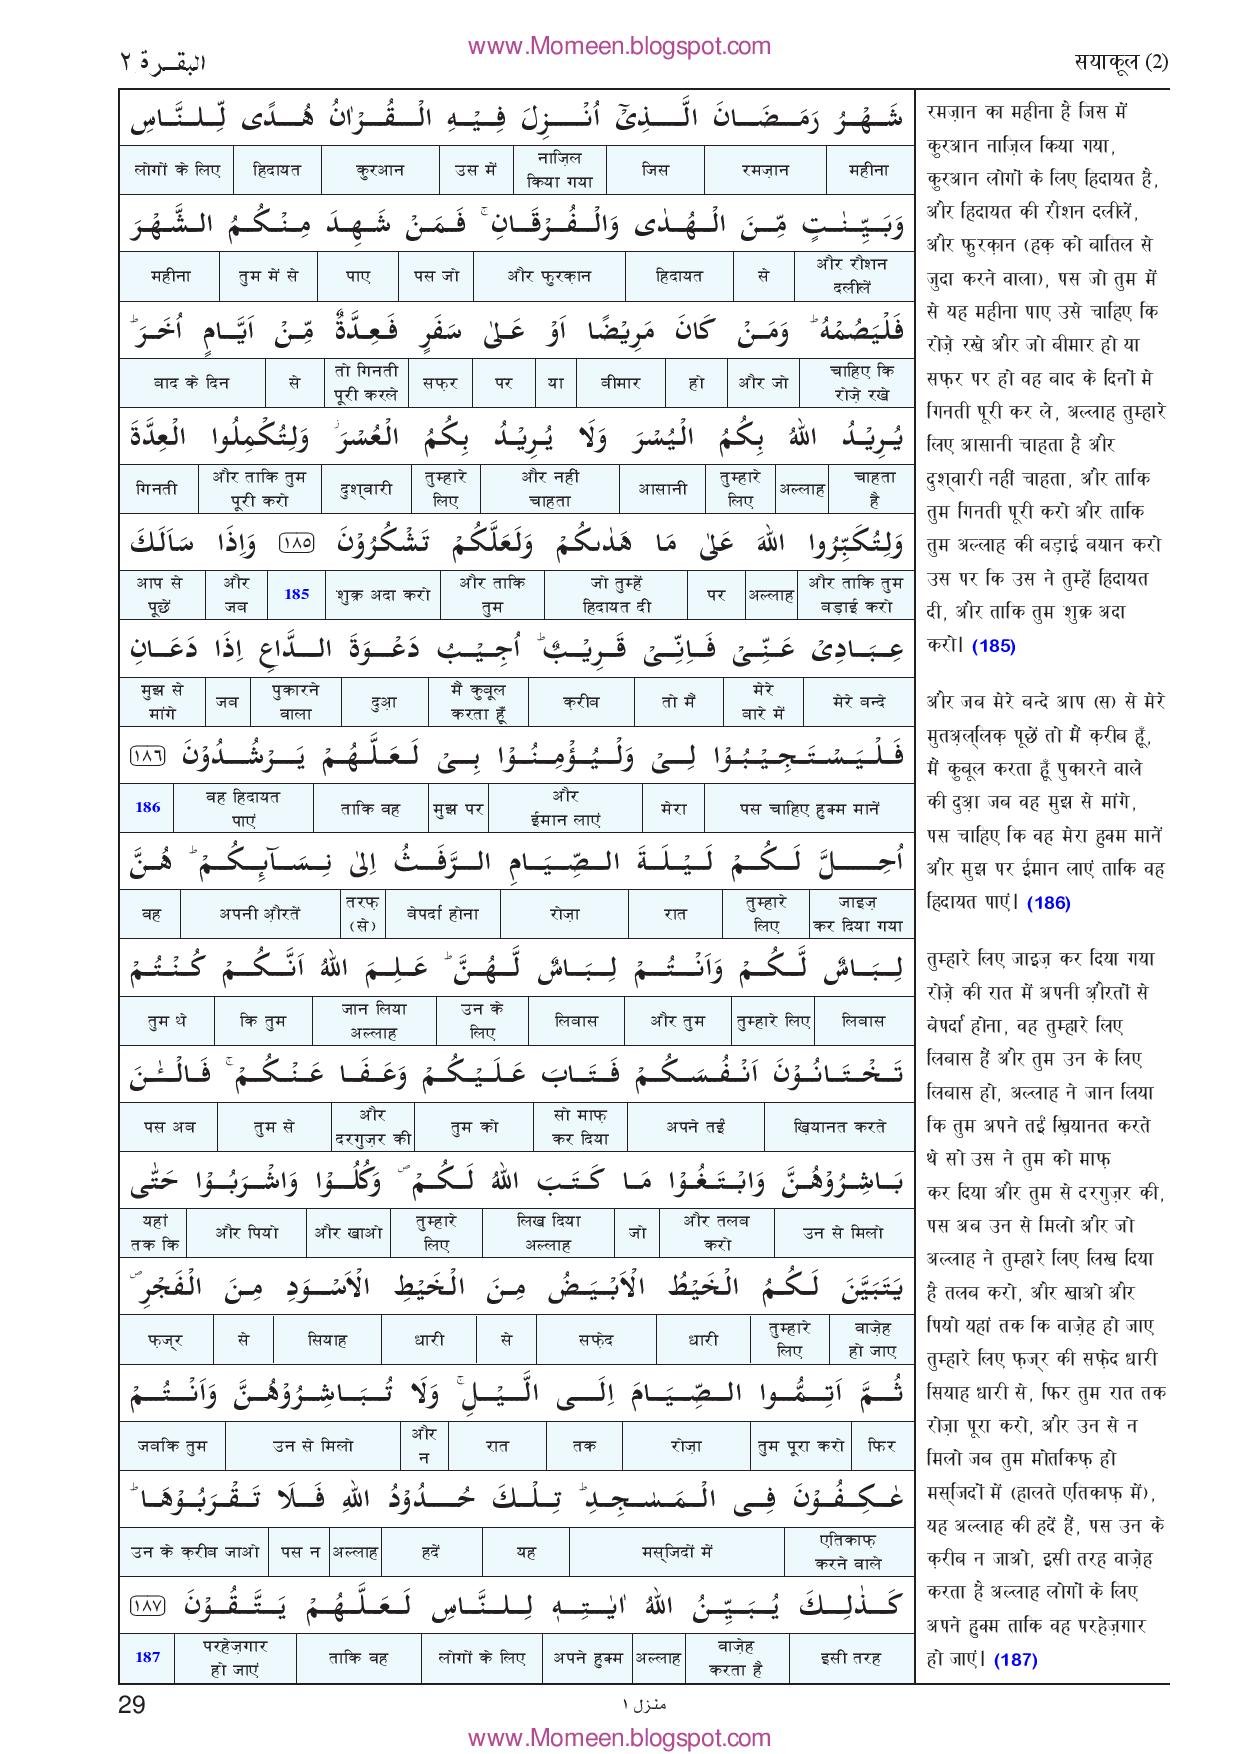 www.Momeen.blogspot.com
البقرة ٢
सयाकूल (2)
شَهْرُ رَمَضَانَ الَّذِیْۤ اُنْزِلَ فِیْهِ الْقُرْاٰنُ هُدًی لِّلنَّاسِ
महीना रमज़ान जिस नाज़िल किया गया उस में क़ुरआन हिदायत लोगों के लिए
وَبَیِّنٰتٍ مِّنَ الْهُدٰی وَالْفُرْقَانِ ۚ فَمَنْ شَهِدَ مِنْكُمُ الشَّهْرَ
और रौशन दलीलें से हिदायत और फ़ुरक़ान पस जो पाए तुम में से महीना
فَلْیَصُمْهُ ؕ وَمَنْ كَانَ مَرِیْضًا اَوْ عَلٰی سَفَرٍ فَعِدَّةٌ مِّنْ اَیَّامٍ اُخَرَ ؕ
चाहिए कि रोज़े रखे और जो हो बीमार या पर सफ़र तो गिनती पूरी करले से बाद के दिन
یُرِیْدُ اللّٰهُ بِكُمُ الْیُسْرَ وَلَا یُرِیْدُ بِكُمُ الْعُسْرَ ۫ وَلِتُكْمِلُوا الْعِدَّةَ
चाहता है अल्लाह तुम्हारे लिए आसानी और नहीं चाहता तुम्हारे लिए दुश्वारी और ताकि तुम पूरी करो गिनती
وَلِتُكَبِّرُوا اللّٰهَ عَلٰی مَا هَدٰىكُمْ وَلَعَلَّكُمْ تَشْكُرُوْنَ ١٨٥ وَاِذَا سَاَلَكَ
और ताकि तुम बड़ाई करो अल्लाह पर जो तुम्हें हिदायत दी और ताकि तुम शुक्र अदा करो 185 और जब आप से पूछें
عِبَادِیْ عَنِّیْ فَاِنِّیْ قَرِیْبٌ ؕ اُجِیْبُ دَعْوَةَ الدَّاعِ اِذَا دَعَانِ
मेरे बन्दे मेरे बारे में तो मैं क़रीब मैं क़ुबूल करता हूँ दुआ़ पुकारने वाला जब मुझ से मांगे
فَلْیَسْتَجِیْبُوْا لِیْ وَلْیُؤْمِنُوْا بِیْ لَعَلَّهُمْ یَرْشُدُوْنَ ١٨٦
पस चाहिए हुक्म मानें मेरा और ईमान लाएं मुझ पर ताकि वह वह हिदायत पाएं 186
اُحِلَّ لَكُمْ لَیْلَةَ الصِّیَامِ الرَّفَثُ اِلٰی نِسَآىِٕكُمْ ؕ هُنَّ
जाइज़ कर दिया गया तुम्हारे लिए रात रोज़ा बेपर्दा होना तरफ़ (से) अपनी औ़रतें वह
لِبَاسٌ لَّكُمْ وَاَنْتُمْ لِبَاسٌ لَّهُنَّ ؕ عَلِمَ اللّٰهُ اَنَّكُمْ كُنْتُمْ
लिबास तुम्हारे लिए और तुम लिबास उन के लिए जान लिया अल्लाह कि तुम तुम थे
تَخْتَانُوْنَ اَنْفُسَكُمْ فَتَابَ عَلَیْكُمْ وَعَفَا عَنْكُمْ ۚ فَالْـٰٔنَ
ख़ियानत करते अपने तईं सो माफ़ कर दिया तुम को और दरगुज़र की तुम से पस अब
بَاشِرُوْهُنَّ وَابْتَغُوْا مَا كَتَبَ اللّٰهُ لَكُمْ ۪ وَكُلُوْا وَاشْرَبُوْا حَتّٰی
उन से मिलो और तलब करो जो लिख दिया अल्लाह तुम्हारे लिए और खाओ और पियो यहां तक कि
یَتَبَیَّنَ لَكُمُ الْخَیْطُ الْاَبْیَضُ مِنَ الْخَیْطِ الْاَسْوَدِ مِنَ الْفَجْرِ ۪
वाज़ेह हो जाए तुम्हारे लिए धारी सफ़ेद से धारी सियाह से फ़ज्र
ثُمَّ اَتِمُّوا الصِّیَامَ اِلَی الَّیْلِ ۚ وَلَا تُبَاشِرُوْهُنَّ وَاَنْتُمْ
फिर तुम पूरा करो रोज़ा तक रात और न उन से मिलो जबकि तुम
عٰكِفُوْنَ فِی الْمَسٰجِدِ ؕ تِلْكَ حُدُوْدُ اللّٰهِ فَلَا تَقْرَبُوْهَا ؕ
एतिकाफ़ करने वाले मस्जिदों में यह हदें अल्लाह पस न उन के क़रीब जाओ
كَذٰلِكَ یُبَیِّنُ اللّٰهُ اٰیٰتِهٖ لِلنَّاسِ لَعَلَّهُمْ یَتَّقُوْنَ ١٨٧
इसी तरह वाज़ेह करता है अल्लाह अपने हुक्म लोगों के लिए ताकि वह परहेज़गार हो जाएं 187
रमज़ान का महीना है जिस में
क़ुरआन नाज़िल किया गया,
क़ुरआन लोगों के लिए हिदायत है,
और हिदायत की रौशन दलीलें,
और फ़ुरक़ान (हक़ को बातिल से
जुदा करने वाला), पस जो तुम में
से यह महीना पाए उसे चाहिए कि
रोज़े रखे और जो बीमार हो या
सफ़र पर हो वह बाद के दिनों मे
गिनती पूरी कर ले, अल्लाह तुम्हारे
लिए आसानी चाहता है और
दुश्वारी नहीं चाहता, और ताकि
तुम गिनती पूरी करो और ताकि
तुम अल्लाह की बड़ाई बयान करो
उस पर कि उस ने तुम्हें हिदायत
दी, और ताकि तुम शुक्र अदा
करो। (185)
और जब मेरे बन्दे आप (स) से मेरे
मुतअ़ल्लिक़ पूछें तो मैं क़रीब हूँ,
मैं क़ुबूल करता हूँ पुकारने वाले
की दुआ़ जब वह मुझ से मांगे,
पस चाहिए कि वह मेरा हुक्म मानें
और मुझ पर ईमान लाएं ताकि वह
हिदायत पाएं। (186)
तुम्हारे लिए जाइज़ कर दिया गया
रोज़े की रात में अपनी औ़रतों से
बेपर्दा होना, वह तुम्हारे लिए
लिबास हैं और तुम उन के लिए
लिबास हो, अल्लाह ने जान लिया
कि तुम अपने तईं ख़ियानत करते
थे सो उस ने तुम को माफ़
कर दिया और तुम से दरगुज़र की,
पस अब उन से मिलो और जो
अल्लाह ने तुम्हारे लिए लिख दिया
है तलब करो, और खाओ और
पियो यहां तक कि वाज़ेह हो जाए
तुम्हारे लिए फ़ज्र की सफ़ेद धारी
सियाह धारी से, फिर तुम रात तक
रोज़ा पूरा करो, और उन से न
मिलो जब तुम मोतकिफ़ हो
मस्जिदों में (हालते एतिकाफ़ में),
यह अल्लाह की हदें हैं, पस उन के
क़रीब न जाओ, इसी तरह वाज़ेह
करता है अल्लाह लोगों के लिए
अपने हुक्म ताकि वह परहेज़गार
हो जाएं। (187)
29
منزل ١
www.Momeen.blogspot.com